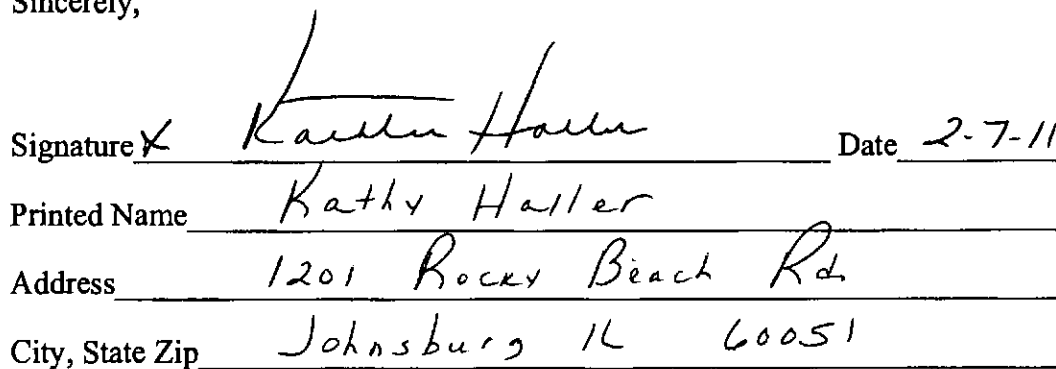 Sincerely,
Signature X Kathy Haller Date 2-7-11
Printed Name Kathy Haller
Address 1201 Rocky Beach Rd
City, State Zip Johnsburg IL 60051